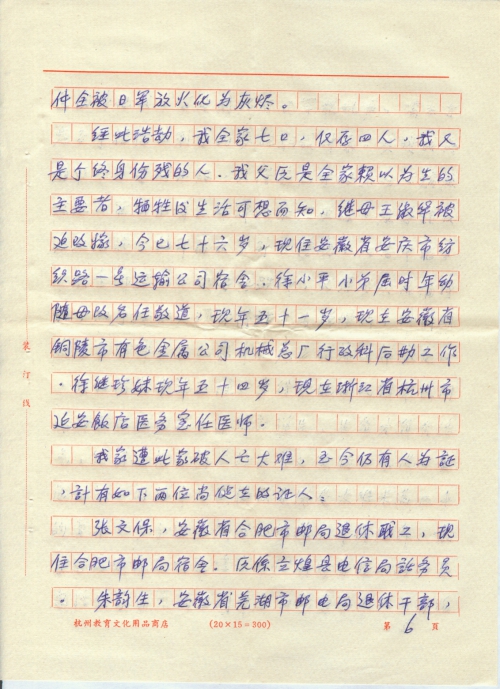 件全被日军放火化为灰烬。
经此浩劫，我全家七口，仅存四人，我又
是个终身份残的人．我父氏是全家赖以为生的
主要者，牺牲后生活可想而知，继母王淑华被
迫改嫁，今已七十六岁，现住安徽省安庆市纺
织路一号运输公司宿舍．徐小平小弟届时年幼
随母改名任敬道，现年五十一岁，现在安徽省
铜陵市有色金属公司机械总厂行政科后勤工作
．徐继珍妹现年五十四岁，现在浙江省杭州市
延安飯店医务室任医师．
我家遭此家破人亡大难，至今仍有人为証
，計有如下两位尚健在的证人：
张文保，安徽省合肥市邮局退休職工，现
住合肥市邮局宿舍．氏係立煌县电信局話务员
．朱韵生，安徽省芜湖市邮电局退休干部，
装订线
杭州教育文化用品商店 (20×15=300) 第 6 页